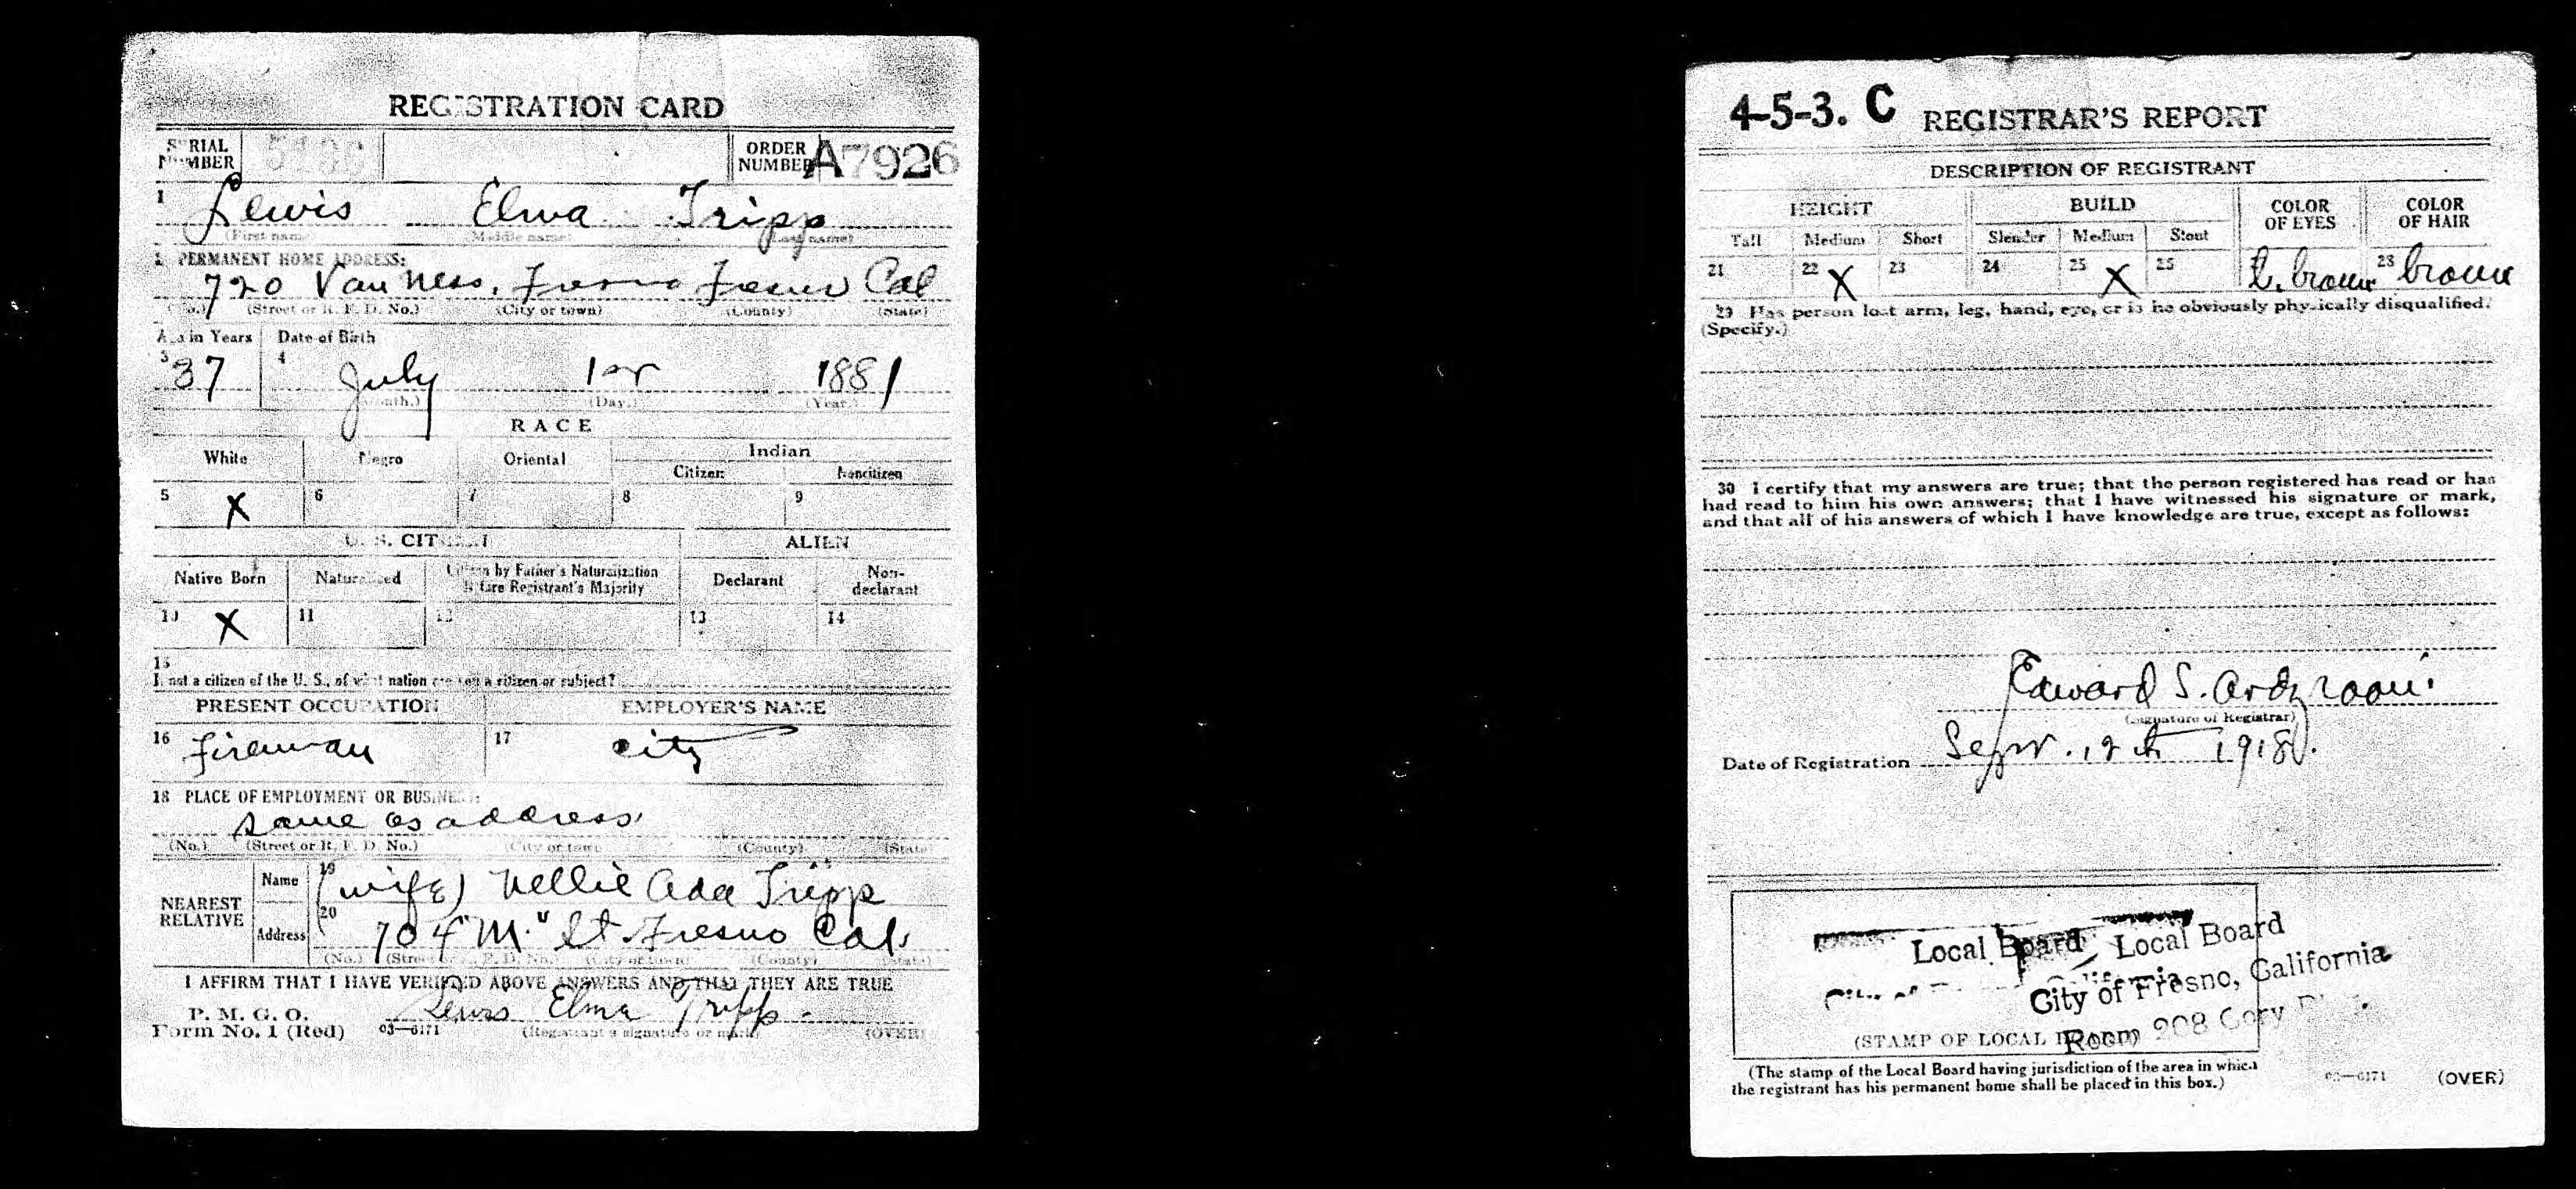 REGISTRATION CARD
SERIAL NUMBER
ORDER NUMBER A7926
1 Lewis Elma Tripp
(First name) (Middle name) (Last name)
2 PERMANENT HOME ADDRESS:
720 Van Ness, Fresno Fresno Cal
(No.) (Street or R. F. D. No.) (City or town) (County) (State)
Age in Years Date of Birth
3 37 4 July 1st 1881
(Month.) (Day.) (Year.)
RACE
White Negro Oriental Indian
Citizen Noncitizen
5 X 6 7 8 9
U. S. CITIZEN ALIEN
Native Born Naturalized Citizen by Father's Naturalization Before Registrant's Majority Declarant Non-declarant
10 X 11 12 13 14
15
If not a citizen of the U. S., of what nation are you a citizen or subject?
PRESENT OCCUPATION EMPLOYER'S NAME
16 Fireman 17 City
18 PLACE OF EMPLOYMENT OR BUSINESS:
same as address
(No.) (Street or R. F. D. No.) (City or town) (County) (State)
NEAREST RELATIVE Name 19 (wife) Nellie Ada Tripp
Address 20 704 "M" St. Fresno Cal.
(No.) (Street or R. F. D. No.) (City or town) (County) (State)
I AFFIRM THAT I HAVE VERIFIED ABOVE ANSWERS AND THAT THEY ARE TRUE
P. M. G. O.
Form No. 1 (Red) 03—6171 Lewis Elma Tripp.
(Registrant's signature or mark) (OVER)
4-5-3. C REGISTRAR'S REPORT
DESCRIPTION OF REGISTRANT
HEIGHT BUILD COLOR OF EYES COLOR OF HAIR
Tall Medium Short Slender Medium Stout
21 22 X 23 24 25 X 25 brown 28 brown
29 Has person lost arm, leg, hand, eye, or is he obviously physically disqualified?
(Specify.)
30 I certify that my answers are true; that the person registered has read or has
had read to him his own answers; that I have witnessed his signature or mark,
and that all of his answers of which I have knowledge are true, except as follows:
Edward S.
(Signature of Registrar)
Date of Registration Sept. 12th 1918.
Local Board Local Board
City of Fresno, California
Room 208 Cory
(STAMP OF LOCAL BOARD)
(The stamp of the Local Board having jurisdiction of the area in which
the registrant has his permanent home shall be placed in this box.)
03—6171 (OVER)